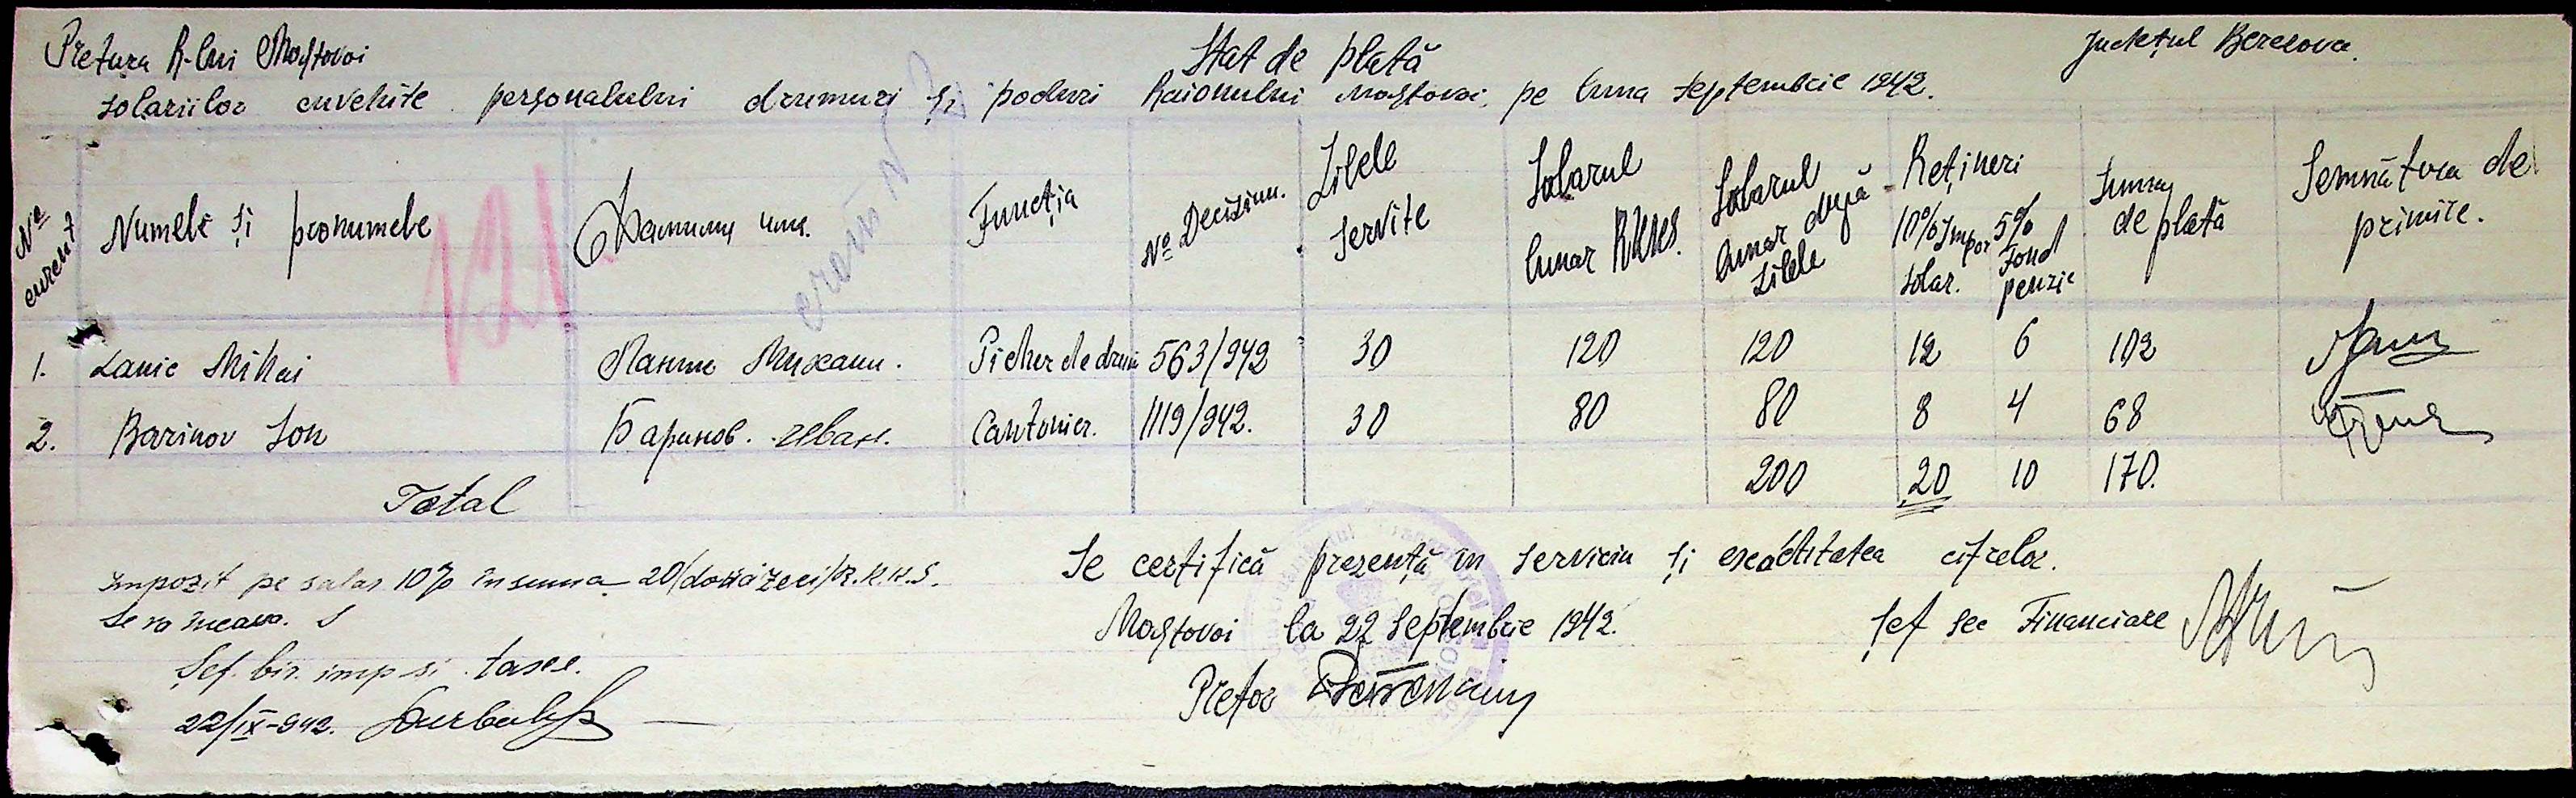 Pretura R-lui Mostovoi
Stat de plată
Județul Berezova.
Solariilor cuvenite personalului drumuri și poduri Raionului Mostovoi, pe luna Septembrie 1942.
Nº curent
Numele și pronumele
121
Функția
Nº Deciziun.
Zilele servite
Solarul lunar RKKS.
Solarul lunar după zilele
Rețineri
10% Impoz solar.
5% Fond penzie
Suma de plată
Semnătura de primire.
1. Lanic Mihai Ланик Михаил. Picher de drum 563/942 30 120 120 12 6 102
2. Barinov Ion Баринов. Иван. Cantonier. 1119/942. 30 80 80 8 4 68
Total 200 20 10 170.
Impozit pe salar 10% în suma 20/douăzeci/R.K.K.S.
Se va încasa.
Șef. bir. imp si taxe.
22/IX-942.
Se certifică prezență în serviciu și exactitatea cifrelor.
Mostovoi la 22 Septembrie 1942.
Pretor
Șef Sec Financiare